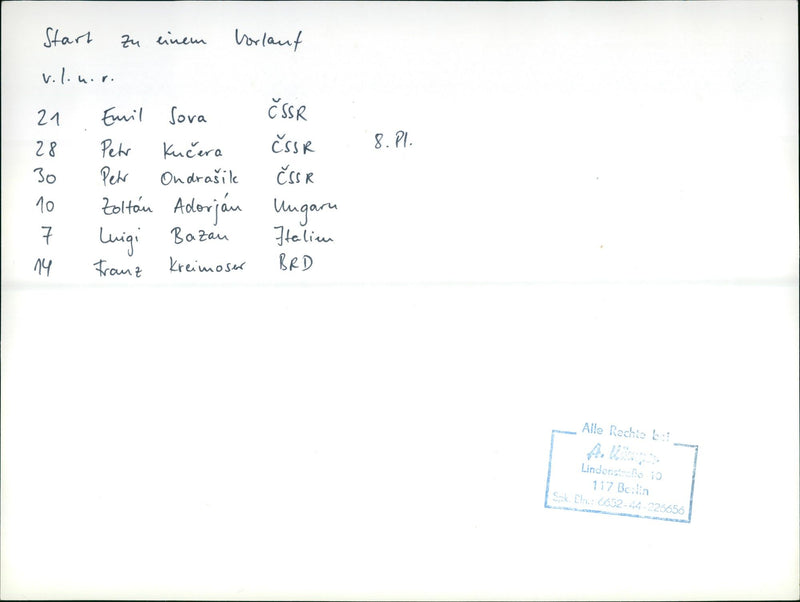 Start zu einem Vorlauf
v.l.n.r.
21 Emil Sova ČSSR
28 Petr Kučera ČSSR 8. Pl.
30 Petr Ondrašik ČSSR
10 Zoltán Adorján Ungarn
7 Luigi Bazan Italien
14 Franz Kreimoser BRD
Alle Rechte bei
A.
Lindenstraße 10
117 Berlin
6652-44-226656